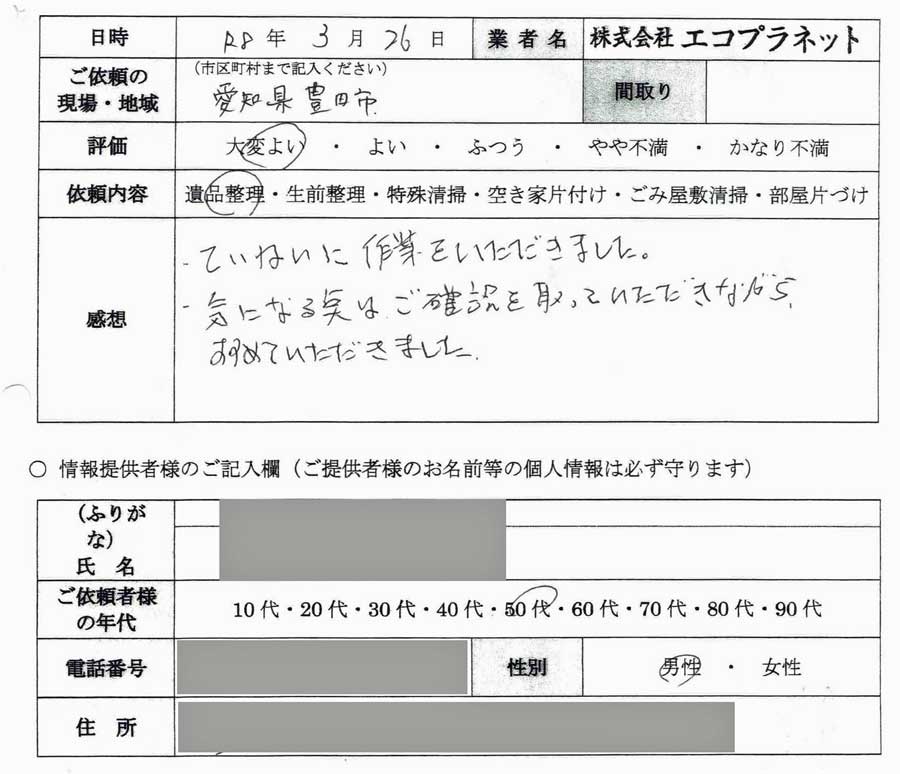 日時 R8 年 3 月 26 日 業者名 株式会社 エコプラネット
ご依頼の現場・地域 (市区町村まで記入ください) 間取り
愛知県豊田市
評価 大変よい ・ よい ・ ふつう ・ やや不満 ・ かなり不満
依頼内容 遺品整理・生前整理・特殊清掃・空き家片付け・ごみ屋敷清掃・部屋片づけ
感想
・ていねいに作業をいただきました。
・気になる点は、ご確認を取っていただきながら、
すすめていただきました。
○ 情報提供者様のご記入欄（ご提供者様のお名前等の個人情報は必ず守ります）
（ふりがな）
氏 名
ご依頼者様の年代 10代・20代・30代・40代・50代・60代・70代・80代・90代
電話番号 性別 男性 ・ 女性
住 所